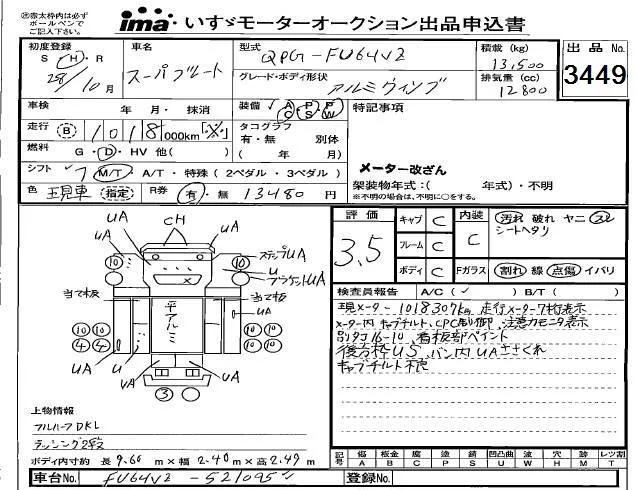 ※赤太枠内は必ず
ボールペンで
ご記入下さい。
ima いすゞモーターオークション出品申込書
初度登録
S・H・R
28/10月
車名
スーパーグレート
型式
QPG-FU64VZ
グレード・ボディ形状
アルミウィング
積載 (kg)
13,500
排気量 (cc)
12800
出品 No.
3449
車検 年 月・ 抹消
装備 A P P
C S W
特記事項
走行 B 1018 000km
タコグラフ
有・無 別体
( 年 月)
燃料 G・D・HV 他( )
メーター改ざん
シフト 7 M/T・A/T・特殊 (2ペダル・3ペダル)
架装物年式:( 年式)・不明
※不明の場合は、不明に○をする。
色 現車 指定
R券 有・無 13480 円
評価
3.5
キャブ C
フレーム C
ボディ C
内装 C
汚れ 破れ ヤニ スレ
シートヘタリ
Fガラス 割れ 線 点傷 イバリ
検査員報告 A/C( ✓ ) B/T( )
現メーター1018307km 走行メーター7桁表示
メーター内 キャブチルト、CPC制御、注意力モニタ表示
別タコ16-10 看板部ペイント
後方枠US、バン内UAささくれ
キャブチルト不良
UA
CH
UA
10
10
ステップUA
U
ブラケットUA
当て板
当て板
平アルミ
UA
10
10
4
4
10
10
4
4
UA
U
UA
UA
UA
3
上物情報
フルハーフDKL
ラッシング2段
ボディ内寸約 長 9.60 m × 幅 2.40 m × 高 2.49 m
記号 傷 板金 腐 塗 錆 凹凸曲 波 穴 跡 レツ割
A B C P S U W H M T
車台No. FU64VZ-521095
登録No.